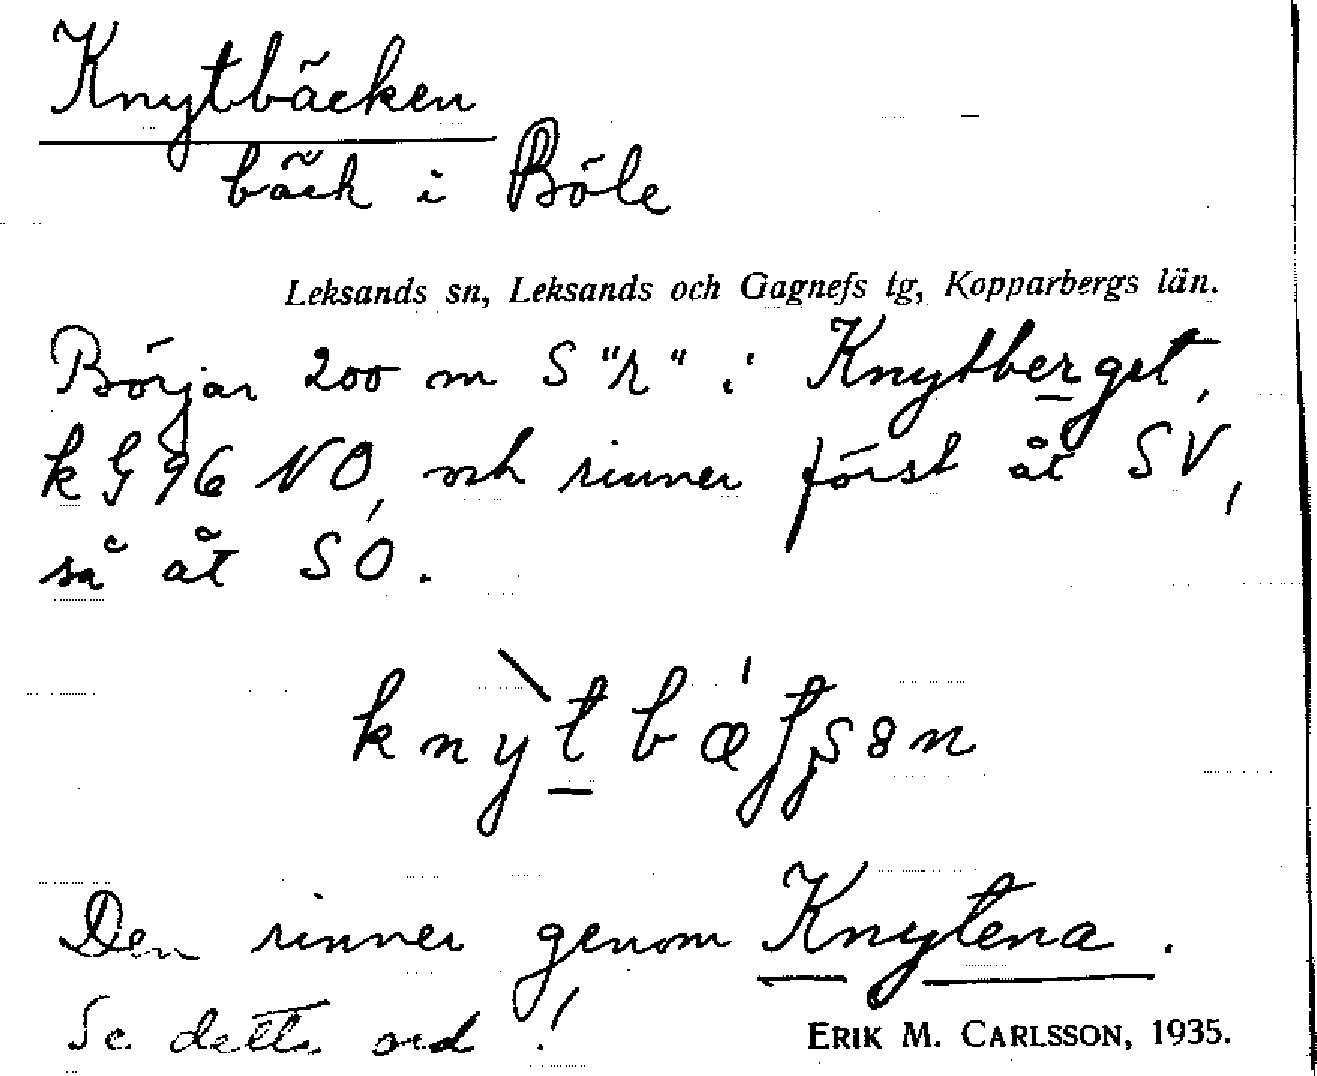 Knytbäcken
bäck i Böle
Leksands sn, Leksands och Gagnefs tg, Kopparbergs län.
Börjar 200 m S "r" i Knytberget,
k G 96 NO, och rinner först åt SV,
så åt SO.
Den rinner genom Knytena.
Se detta ord!
ERIK M. CARLSSON, 1935.